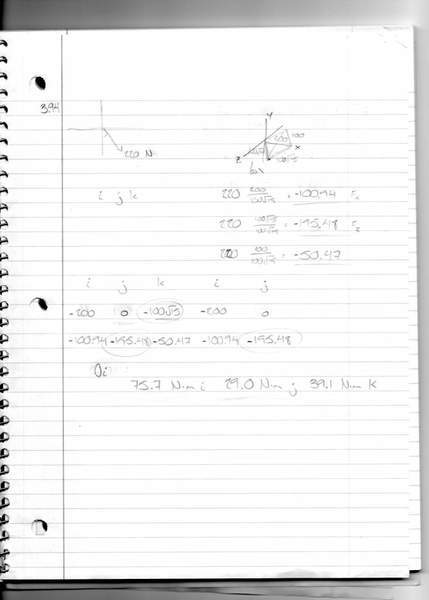 3.94
220 N
Y
X
Z
200
100
i j k
220 200 = -100.94
220 = -195.48
220 100 = -50.47
i j k i j
-200 0 -100√3 -200 0
-100.94 -195.48 -50.47 -100.94 -195.48
75.7 N·m i 29.0 N·m j 39.1 N·m k